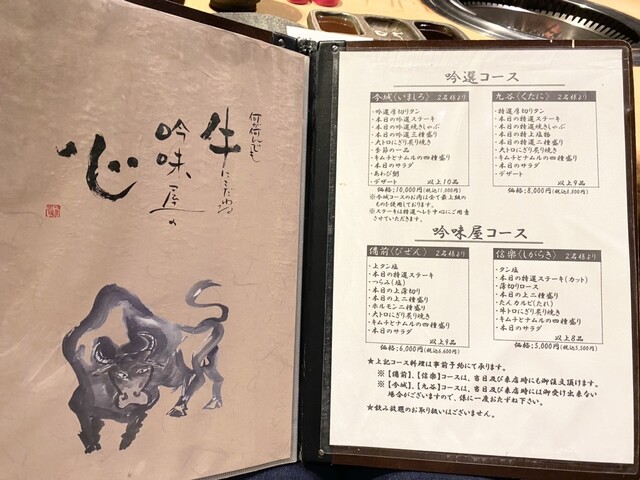 何が何でも
牛にこだわる
吟味屋の
心
吟選コース
今城〈いましろ〉 2名様より
・吟選厚切りタン
・本日の吟選ステーキ
・本日の吟選焼きしゃぶ
・本日の吟選三種盛り
・大トロにぎり炙り焼き
・季節の一品
・キムチとナムルの四種盛り
・本日のサラダ
・あわび鯛
・デザート 以上10品
価格:10,000円(税込11,000円)
※今城コースのお肉は全て最上級の
ものを使用しております。
※ステーキは特選ヘレを中心にご用意
させていただきます。
九谷〈くたに〉 2名様より
・特選厚切りタン
・本日の特選ステーキ
・本日の特選焼きしゃぶ
・本日の特上塩物
・本日の特選二種盛り
・大トロにぎり炙り焼き
・キムチとナムルの四種盛り
・本日のサラダ
・デザート 以上9品
価格:8,000円(税込8,800円)
吟味屋コース
備前〈びぜん〉 2名様より
・上タン塩
・本日の特選ステーキ
・つらみ(塩)
・本日の上薄切り
・本日の上二種盛り
・ホルモン二種盛り
・大トロにぎり炙り焼き
・キムチとナムルの四種盛り
・本日のサラダ
以上9品
価格:6,000円(税込6,600円)
信楽〈しがらき〉 2名様より
・タン塩
・本日の特選ステーキ(カット)
・薄切りロース
・本日の上二種盛り
・たんカルビ(たれ)
・牛トロにぎり炙り焼き
・キムチとナムルの四種盛り
・本日のサラダ
以上8品
価格:5,000円(税込5,500円)
★上記コース料理は事前予約にて承ります。
※【備前】、【信楽】コースは、当日及び来店時にも御注文頂けます。
※【今城】、【九谷】コースは、当日及び来店時には御受け出来ない
場合がございますので、係に一度おたずね下さい。
★飲み放題のお取り扱いはございません。